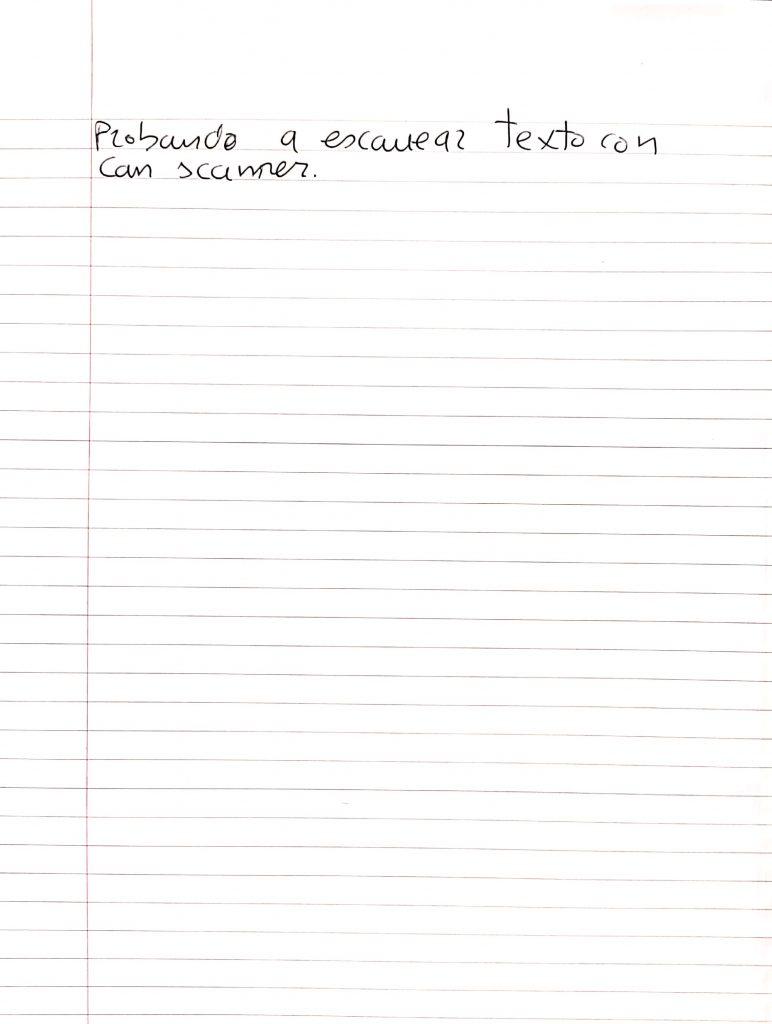 Probando a escanear texto con
can scanner.